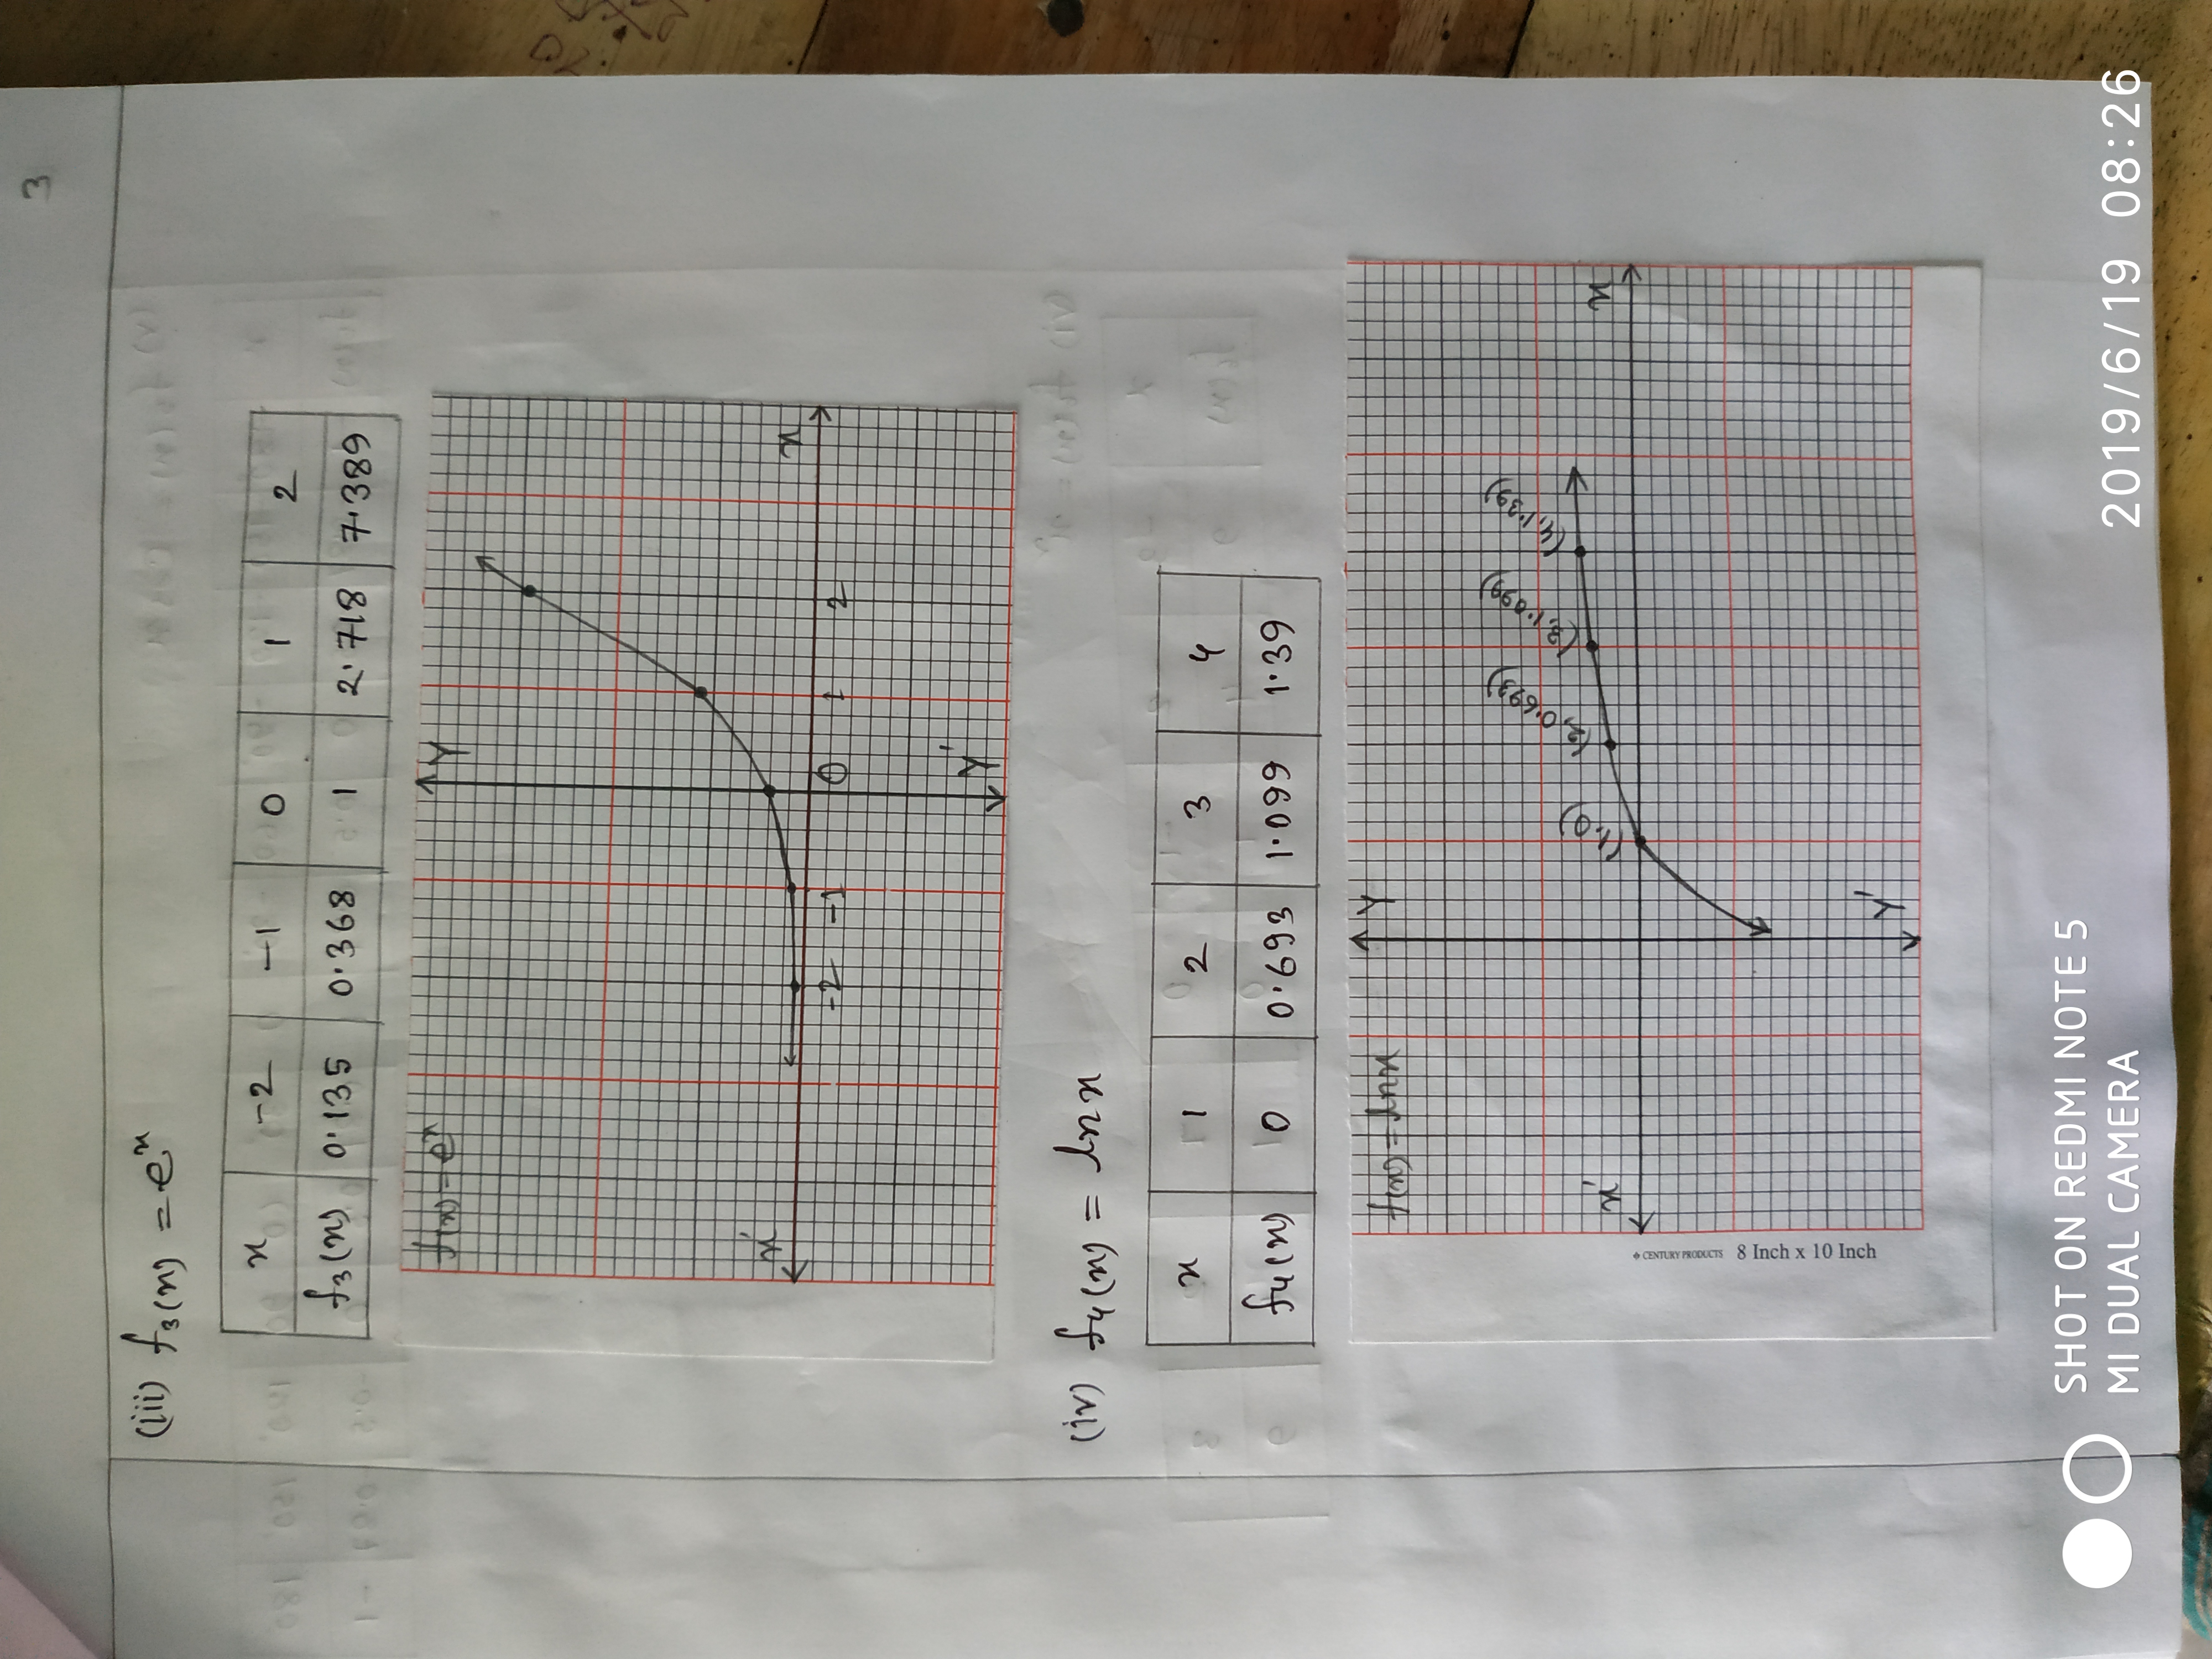 3
(iii) f₃(x) = eˣ
x -2 -1 0 1 2
f₃(x) 0.135 0.368 1 2.718 7.389
f(x) = eˣ
Y
x'
x
-2 -1 0 1 2
Y'
(iv) f₄(x) = ln x
x 1 2 3 4
f₄(x) 0 0.693 1.099 1.39
f(x) = ln x
Y
(1,0) (2,0.693) (3,1.099) (4,1.39)
x'
x
Y'
CENTURY PRODUCTS 8 Inch x 10 Inch
SHOT ON REDMI NOTE 5
MI DUAL CAMERA
2019/6/19 08:26